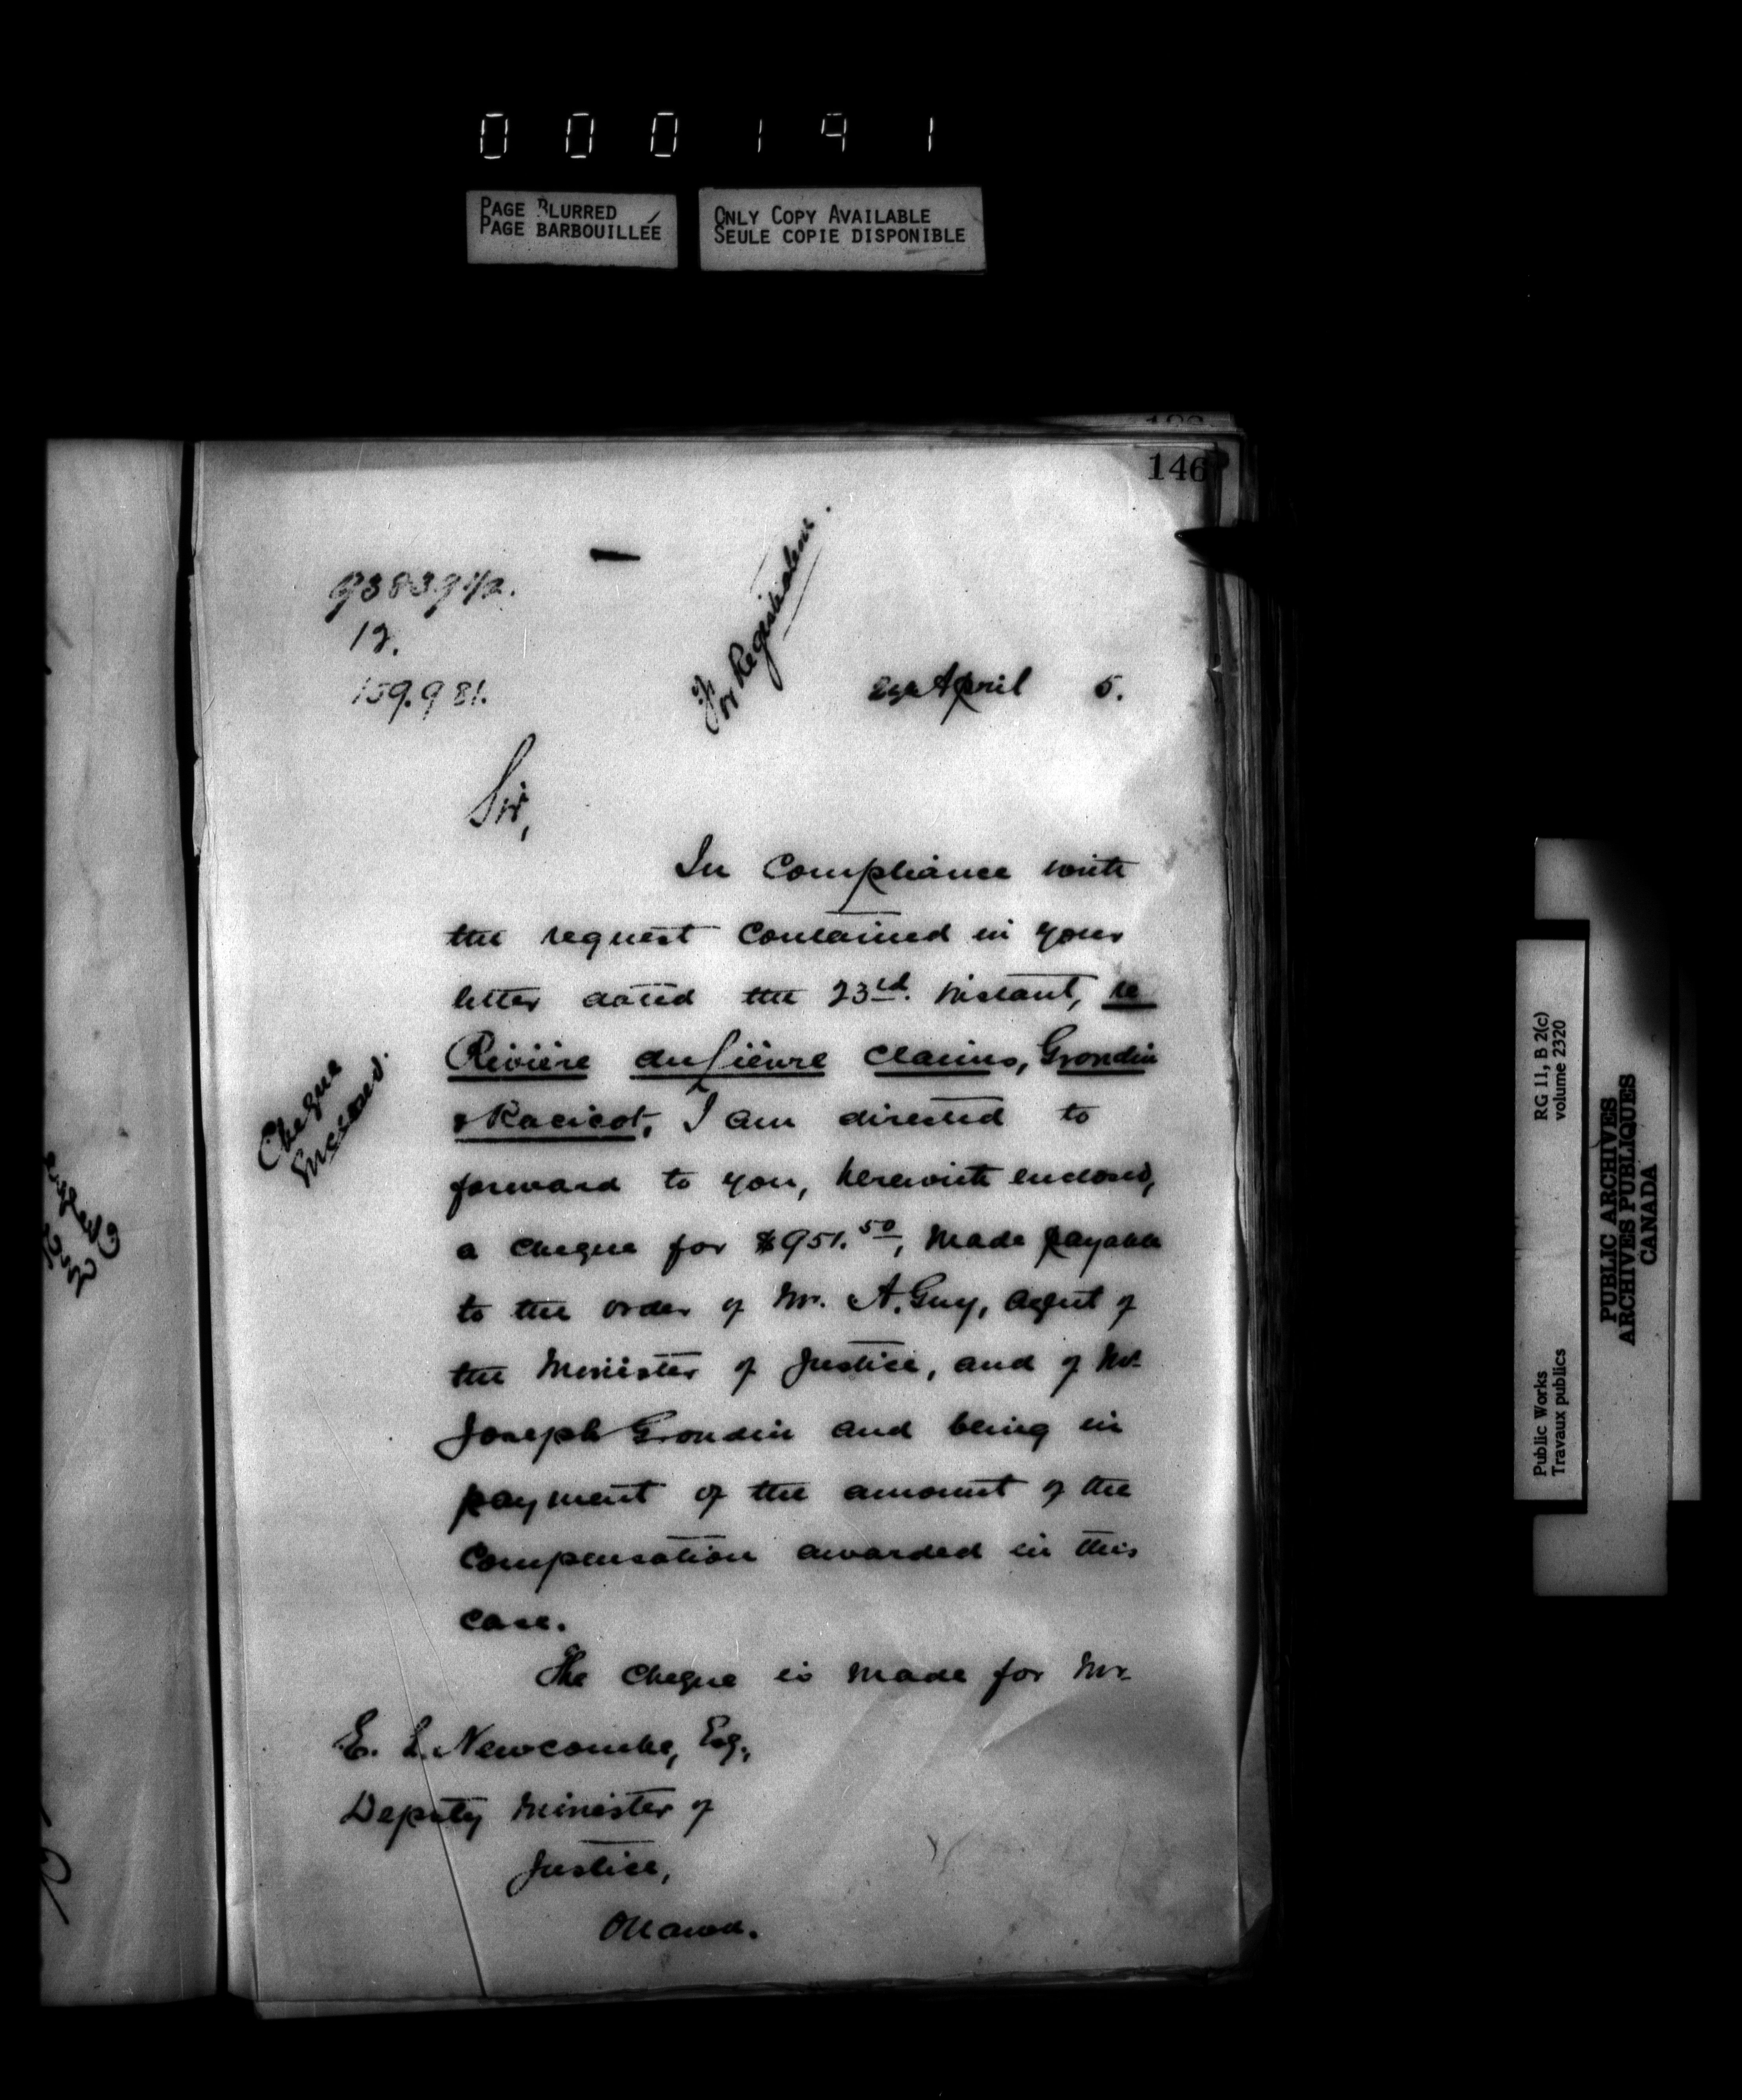 000191
PAGE BLURRED
PAGE BARBOUILLÉE
ONLY COPY AVAILABLE
SEULE COPIE DISPONIBLE
146
93839 1/2.
12.
159.981.
For Registration.
April 5.
Sir,
In compliance with
the request contained in your
letter dated the 23rd. instant, re
Rivière du Lièvre claims, Grondin
& Racicot, I am directed to
Cheque
Enclosed.
forward to you, herewith enclosed,
a cheque for $951.50, made payable
to the order of Mr. A. Guy, agent of
the Minister of Justice, and of Mr.
Joseph Grondin and being in
payment of the amount of the
compensation awarded in this
case.
The cheque is made for Mr.
E. L. Newcombe, Esq.,
Deputy Minister of
Justice,
Ottawa.
RG 11, B 2(c)
volume 2320
Public Works
Travaux publics
PUBLIC ARCHIVES
ARCHIVES PUBLIQUES
CANADA